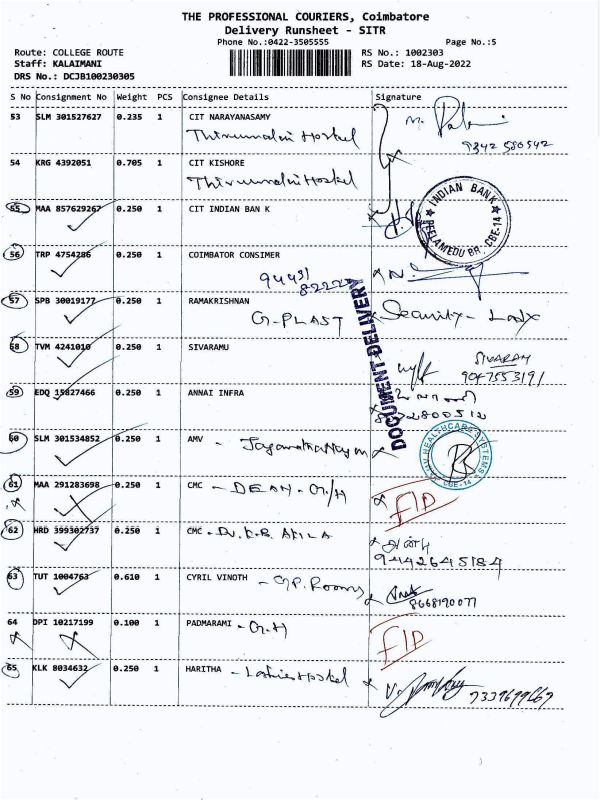 THE PROFESSIONAL COURIERS, Coimbatore
Delivery Runsheet - SITR
Phone No.:0422-3505555 Page No.:5
Route: COLLEGE ROUTE RS No.: 1002303
Staff: KALAIMANI RS Date: 18-Aug-2022
DRS No.: DCJB100230305
S No Consignment No Weight PCS Consignee Details Signature
53 SLM 301527627 0.235 1 CIT NARAYANASAMY
Thirumalai Hostel 9342 580542
54 KRG 4392051 0.705 1 CIT KISHORE
Thirumalai Hostel
55 MAA 857629267 0.250 1 CIT INDIAN BAN K
INDIAN BANK
PEELAMEDU BR. CBE-14
56 TRP 4754286 0.250 1 COIMBATOR CONSIMER
94431
82222
57 SPB 30019177 0.250 1 RAMAKRISHNAN
G-PLAST Security
DOCUMENT DELIVERY
58 TVM 4241010 0.250 1 SIVARAMU
SIVARAM
9047553191
59 EDQ 15827466 0.250 1 ANNAI INFRA
60 SLM 301534852 0.250 1 AMV
HEALTHCARE SYSTEMS
CBE-14
61 MAA 291283698 0.250 1 CMC - DEAN - G/H
F/D
62 HRD 399302737 0.250 1 CMC - Dr. K.B. AKILA
அன்பு
9442645184
63 TUT 1004763 0.610 1 CYRIL VINOTH - G.P. Rooms
8668190077
64 DPI 10217199 0.100 1 PADMARAMI - G.H
F/D
65 KLK 8034632 0.250 1 HARITHA - Ladies Hostel
7339699669